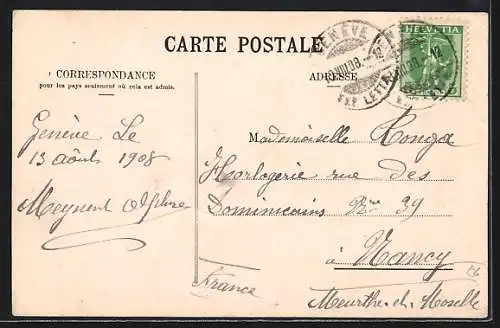 CARTE POSTALE
CORRESPONDANCE
pour les pays seulement où cela est admis.
ADRESSE
GENÈVE
HELVETIA
Genève Le
13 août 1908
Mademoiselle Ronga
Horlogerie rue des
Dominicains No 39
à Nancy
France
Meurthe-et-Moselle